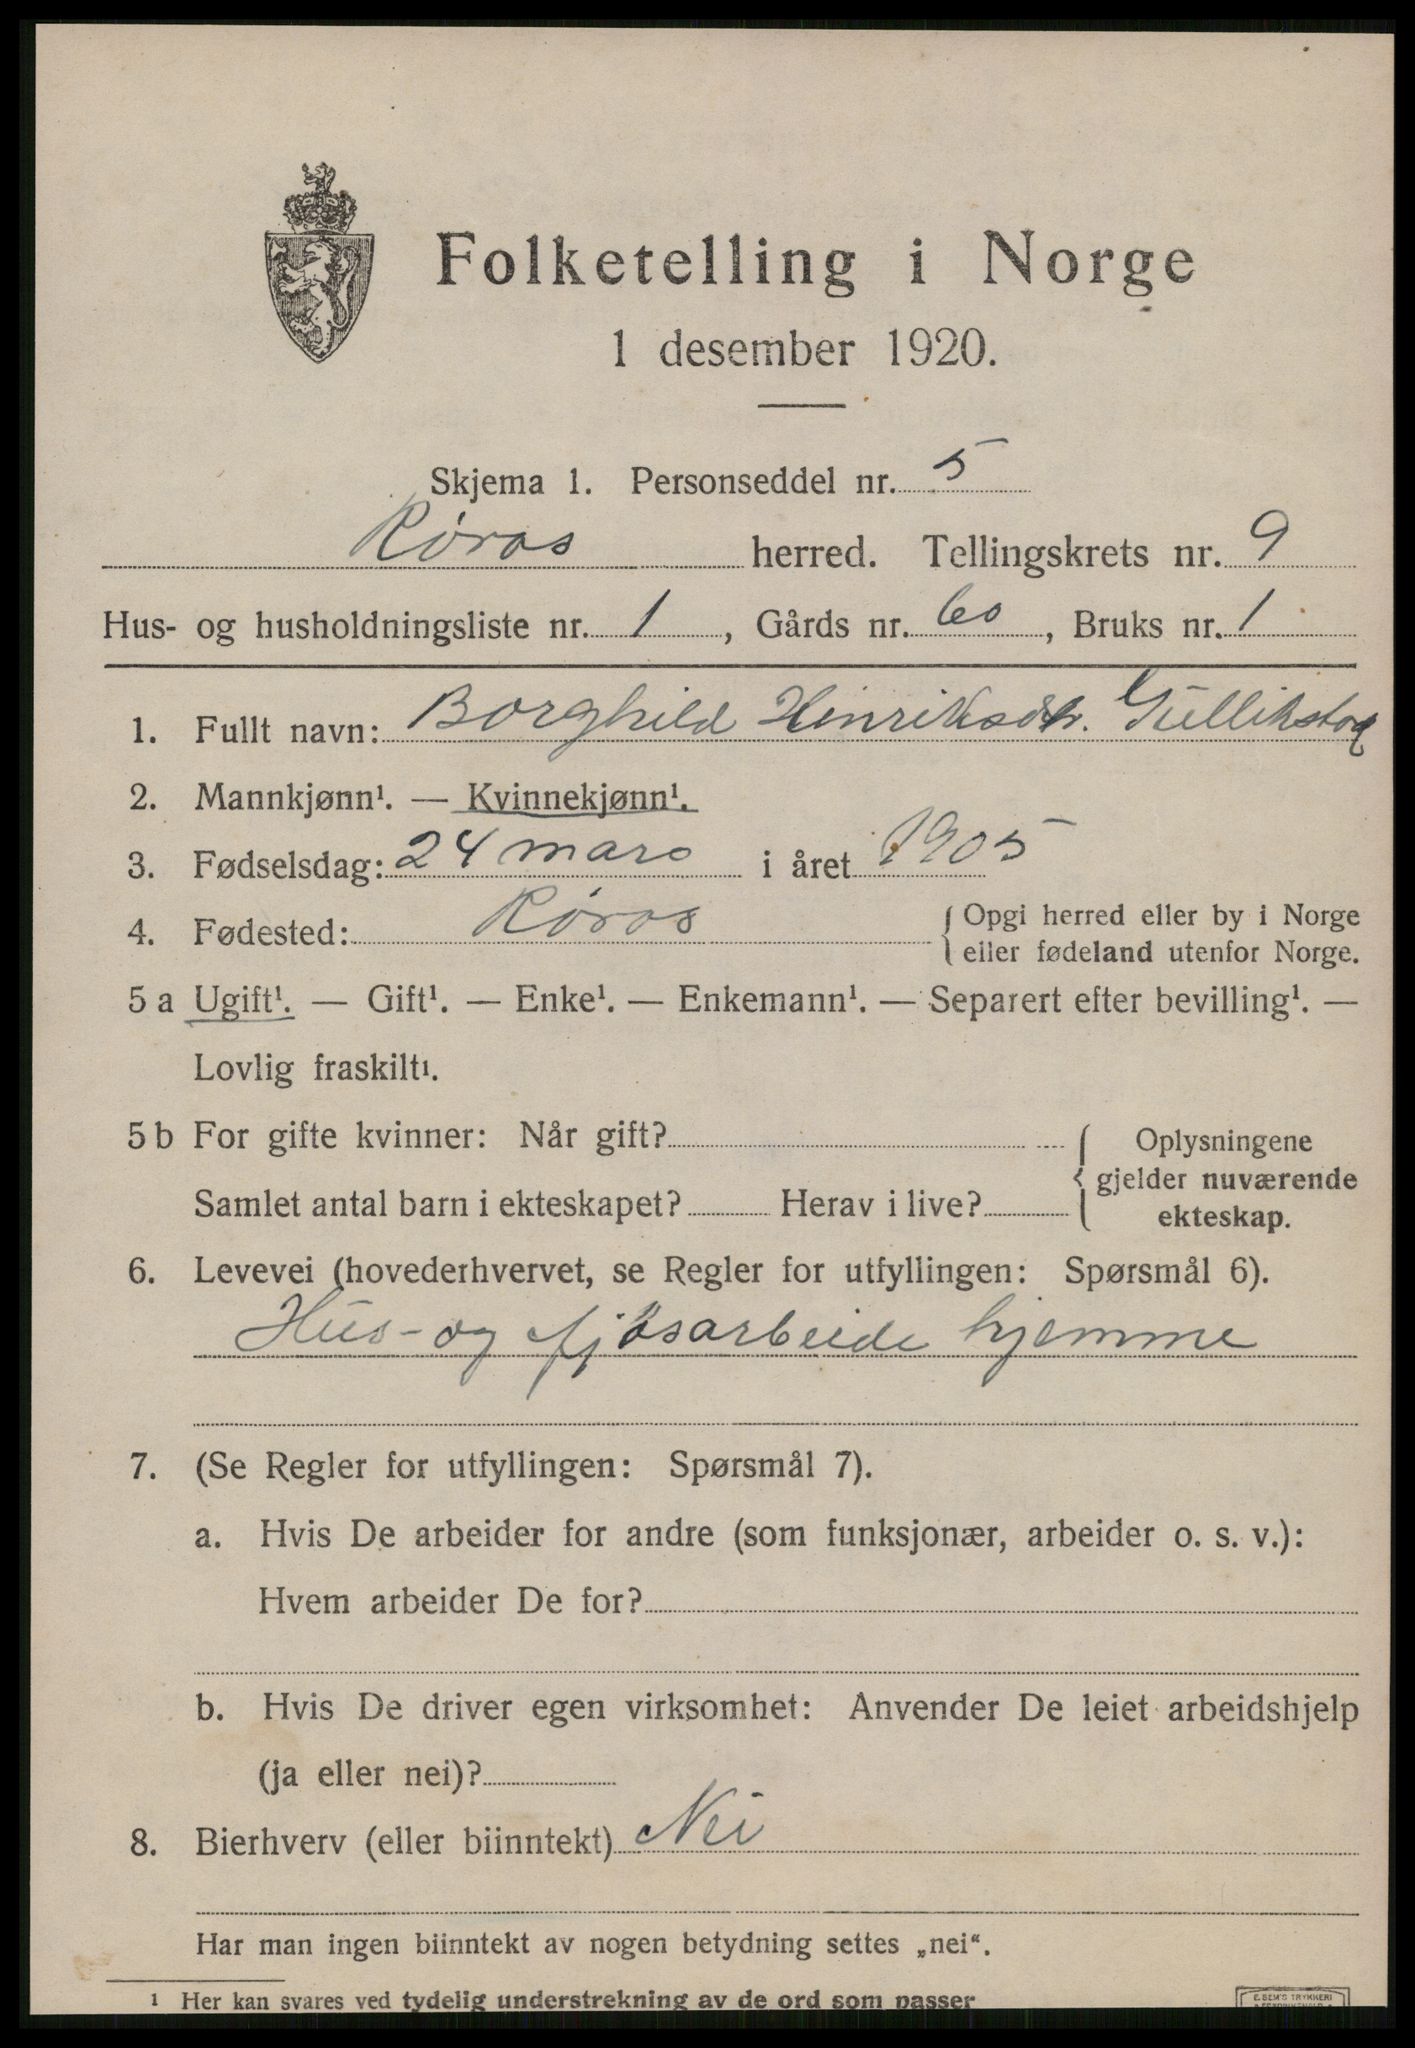 Folketelling i Norge
1 desember 1920.
Skjema 1. Personseddel nr. 5
Røros herred. Tellingskrets nr. 9
Hus- og husholdningsliste nr. 1, Gårds nr. 60, Bruks nr. 1
1. Fullt navn: Borghild Hinriksdtr. Gullikstad
2. Mannkjønn¹. — Kvinnekjønn¹.
3. Fødselsdag: 24 mars i året 1905
4. Fødested: Røros { Opgi herred eller by i Norge
eller fødeland utenfor Norge.
5 a Ugift¹. — Gift¹. — Enke¹. — Enkemann¹. — Separert efter bevilling¹. —
Lovlig fraskilt¹.
5 b For gifte kvinner: Når gift? { Oplysningene
gjelder nuværende
Samlet antal barn i ekteskapet? Herav i live? ekteskap.
6. Levevei (hovederhvervet, se Regler for utfyllingen: Spørsmål 6).
Hus- og fjøsarbeide hjemme
7. (Se Regler for utfyllingen: Spørsmål 7).
a. Hvis De arbeider for andre (som funksjonær, arbeider o. s. v.):
Hvem arbeider De for?
b. Hvis De driver egen virksomhet: Anvender De leiet arbeidshjelp
(ja eller nei)?
8. Bierhverv (eller biinntekt) Nei
Har man ingen biinntekt av nogen betydning settes „nei“.
¹ Her kan svares ved tydelig understrekning av de ord som passer
E. SEM'S TRYKKERI